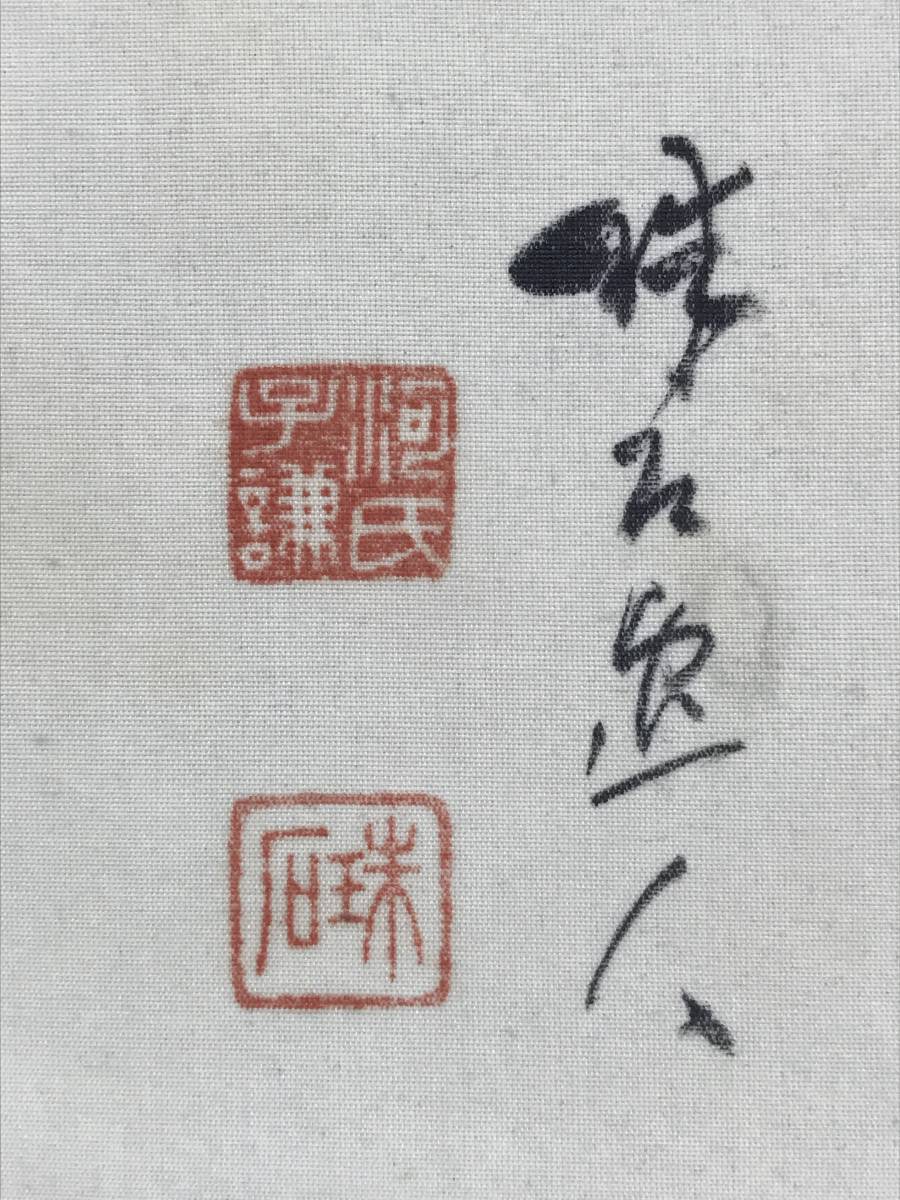 珠石逸人
河氏子謙
珠石